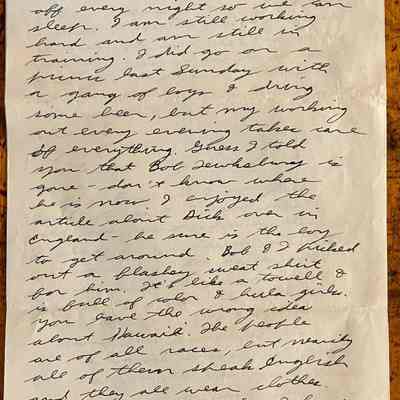 off every night so we can
sleep. I am still working
hard and am still in
training. I did go on a
picnic last Sunday with
a gang of boys & drink
some beer, but my working
out every evening takes care
of everything. Guess I told
you that Bob Tewksbury is
gone - don't know where
he is now. I enjoyed the
article about Dick over in
England - he sure is the boy
to get around. Bob & I picked
out a flashey sweat shirt
for him. It's like a towell &
is full of color & hula girls.
You have the wrong idea
about Hawaii. The people
are of all races, but nearly
all of them speak English
and they all wear clothes.